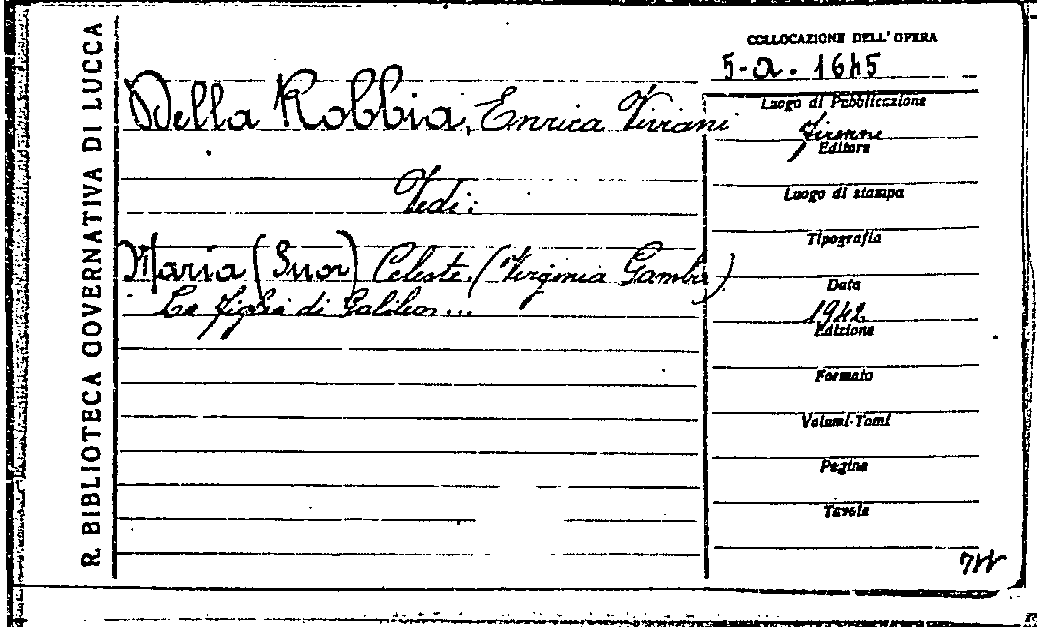 R. BIBLIOTECA GOVERNATIVA DI LUCCA
COLLOCAZIONE DELL'OPERA
5-a. 1645
Della Robbia, Enrica Viviani
Luogo di Pubblicazione
Firenze
Editore
Vedi:
Luogo di stampa
Tipografia
Maria (Suor) Celeste. (Virginia Gamba)
La figlia di Galileo...
Data
1942
Edizione
Formato
Volumi-Tomi
Pagine
Tavole